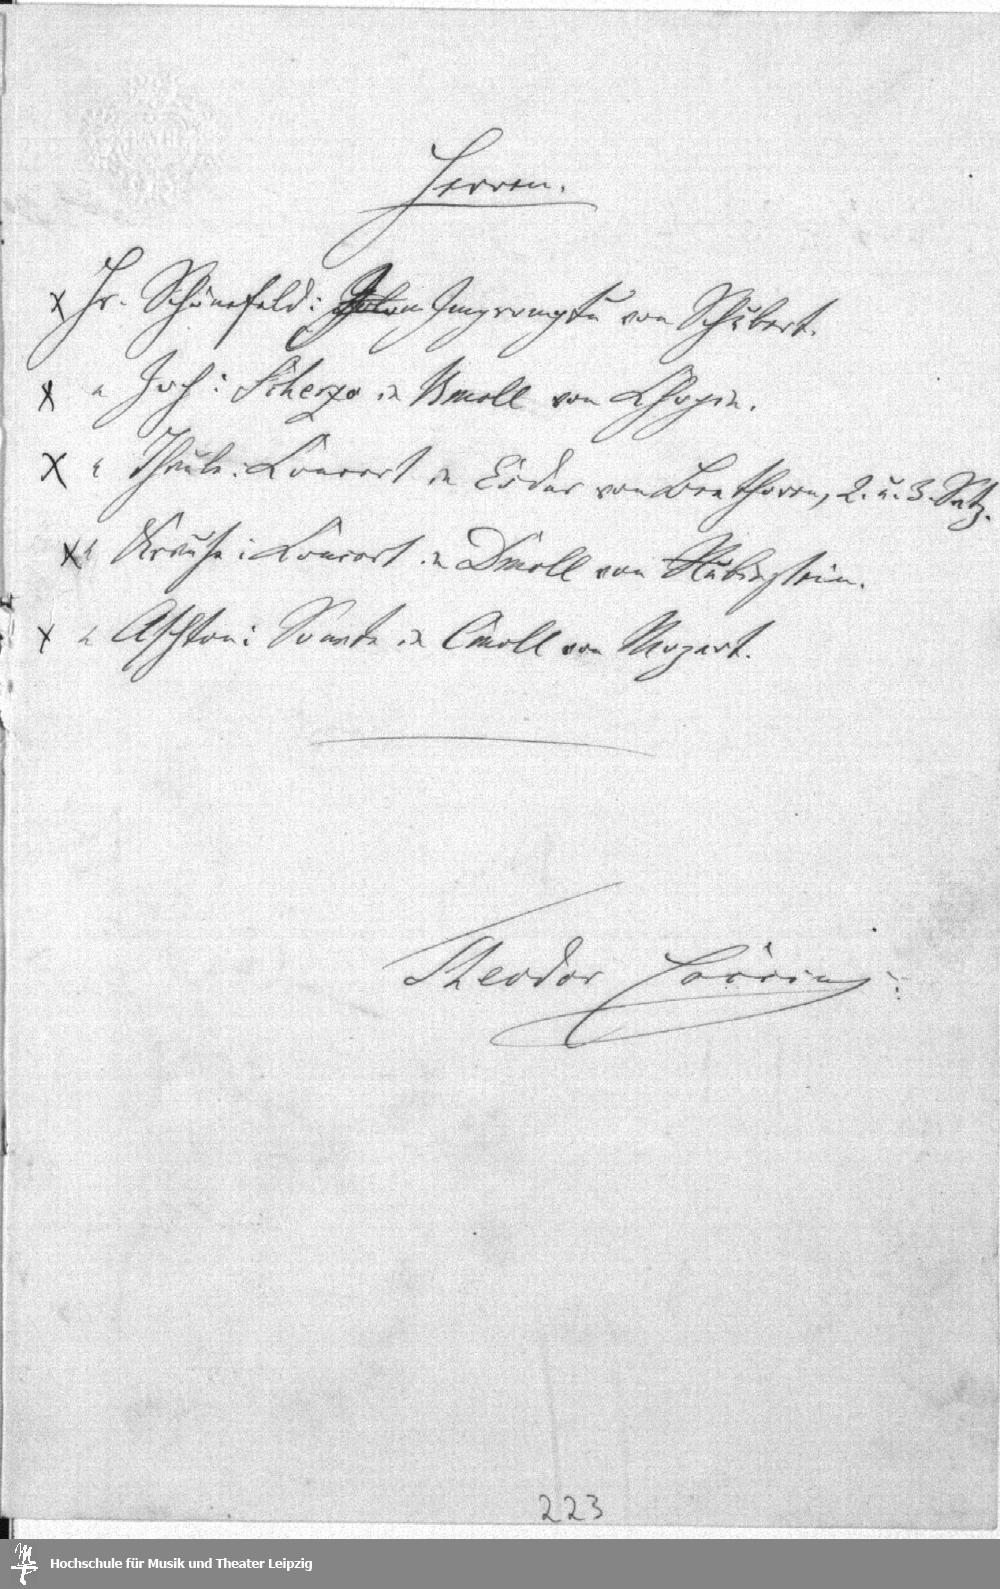 Herren.
x Hr. Schönefeld: Impromptu von Schubert.
x " Joch: Scherzo in Bmoll von Chopin.
x " Thiele: Concert in Esdur von Beethoven, 2. u. 3. Satz.
x " Krause: Concert in Dmoll von Rubinstein.
x " Ashton: Sonate in Cmoll von Mozart.
Theodor Coccius.
223
Hochschule für Musik und Theater Leipzig